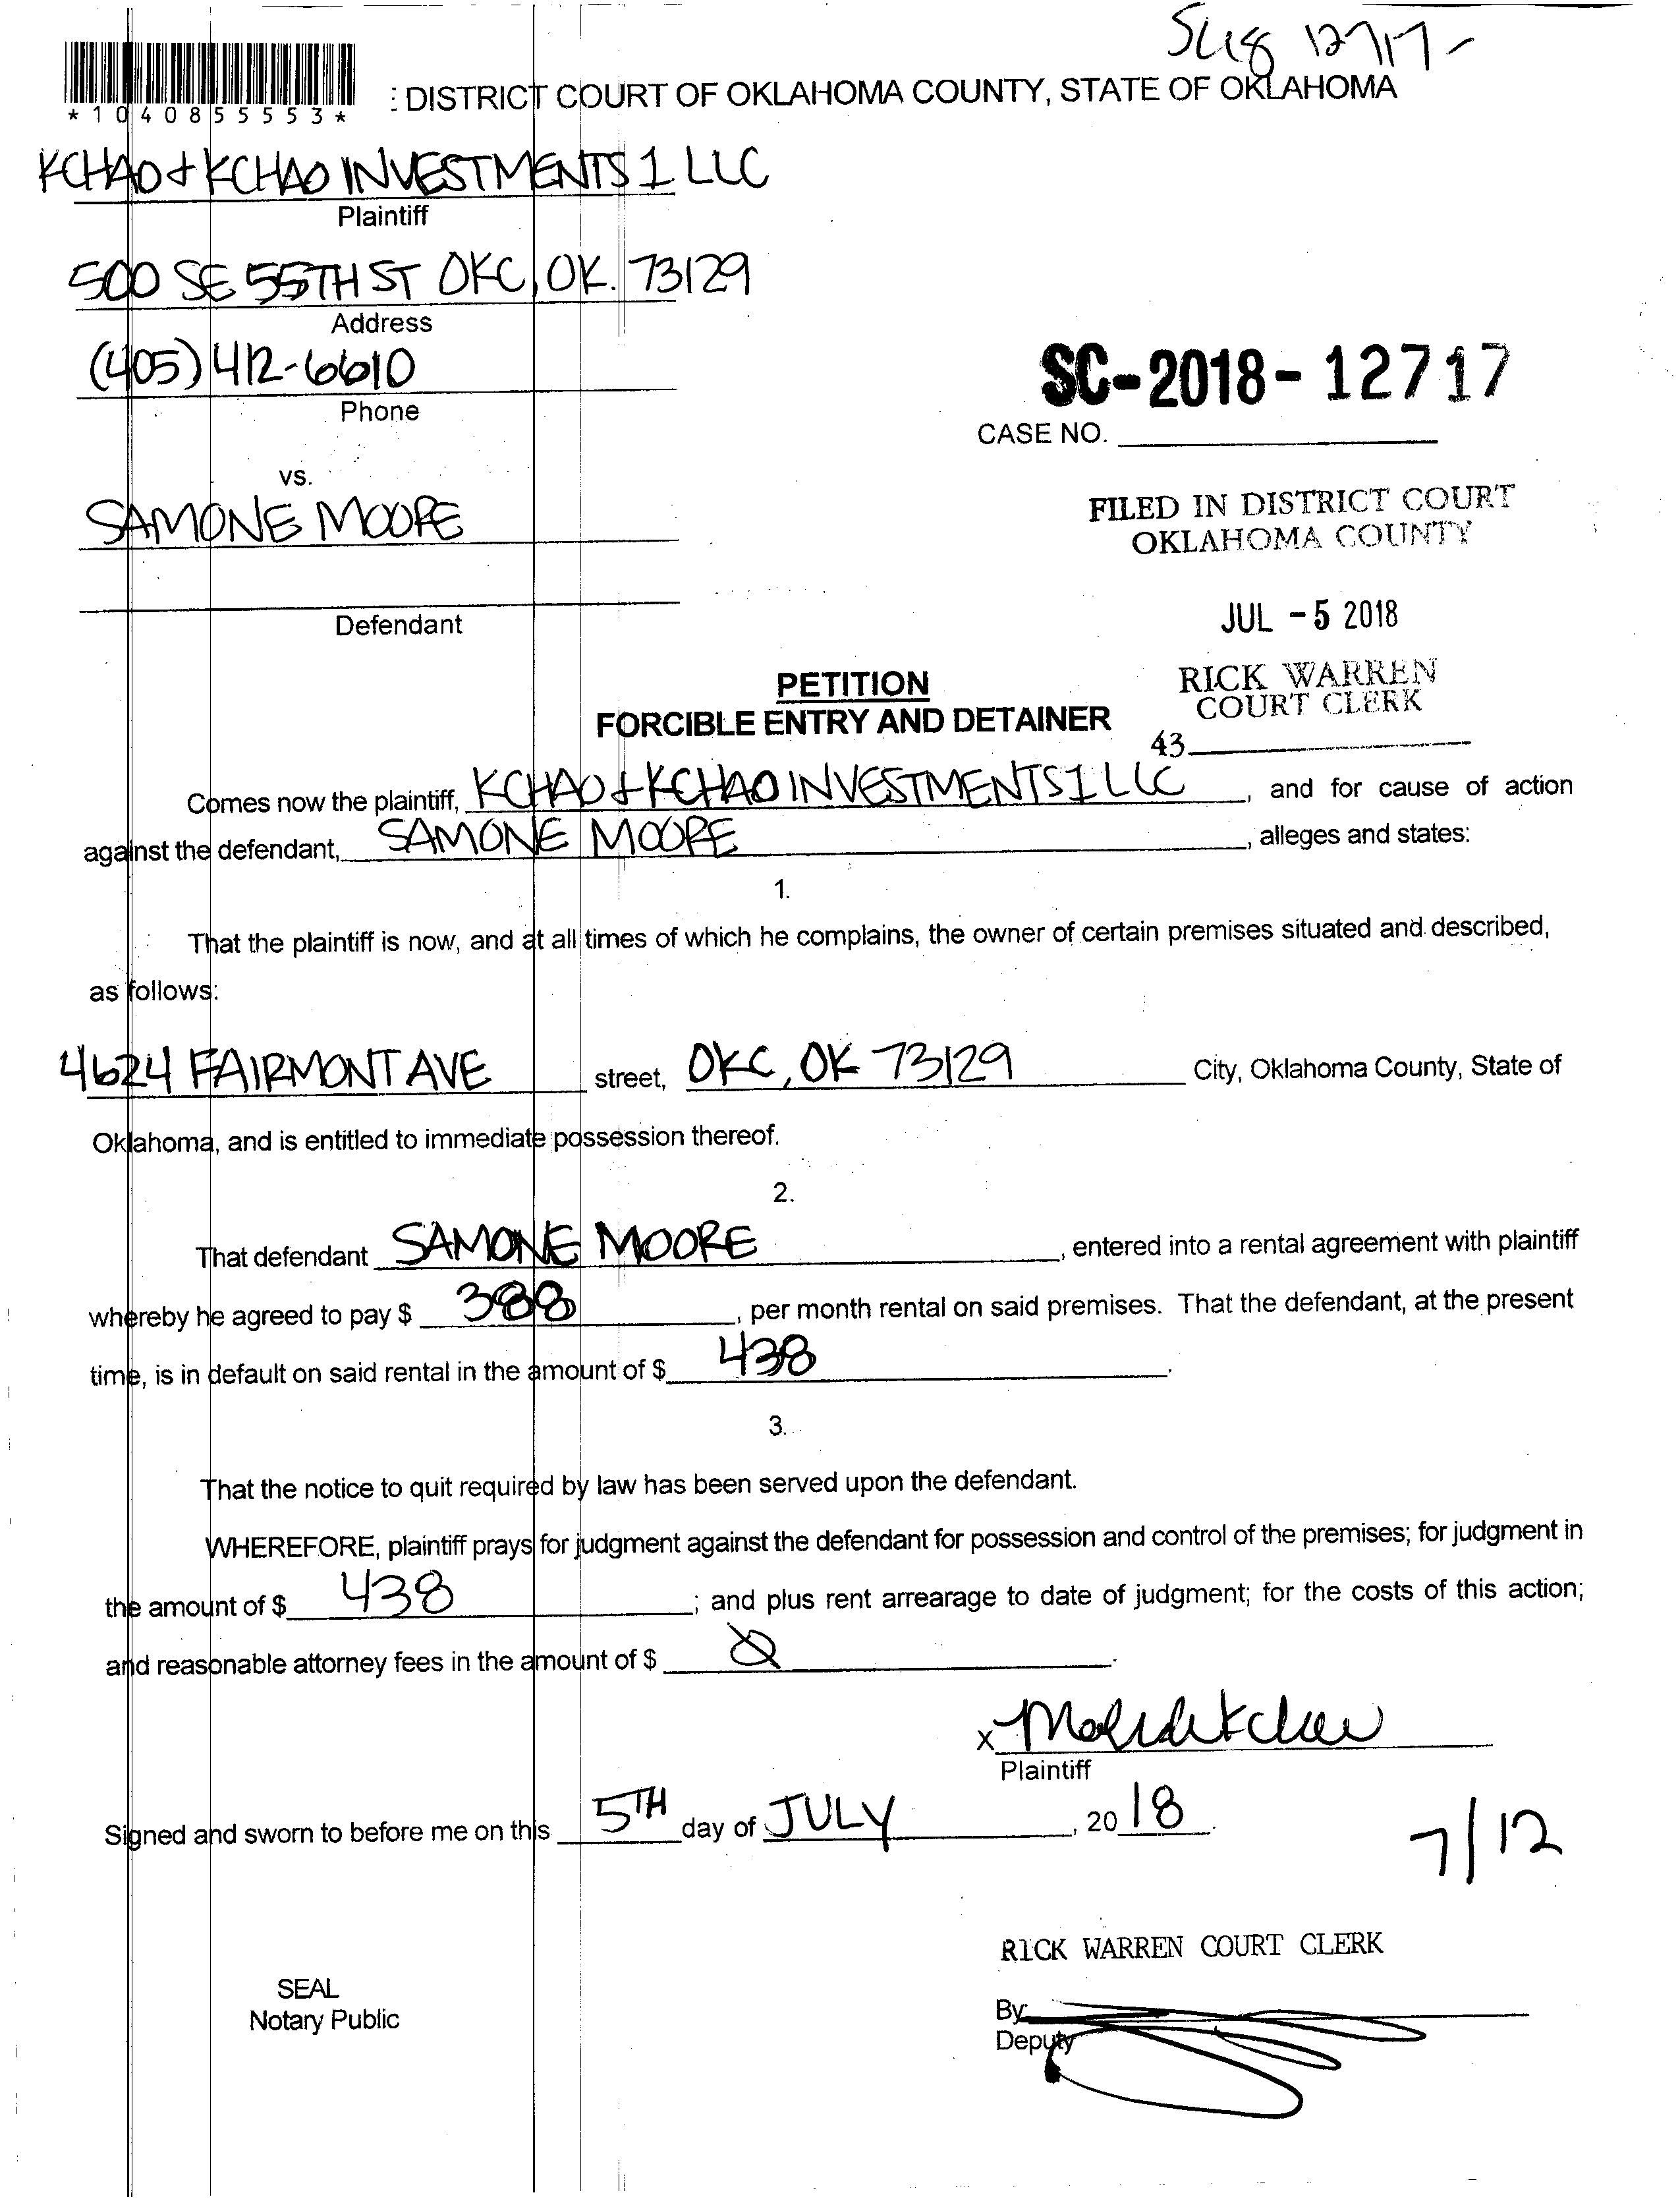 SC18 12717-
*1040855553*
: DISTRICT COURT OF OKLAHOMA COUNTY, STATE OF OKLAHOMA
KCHAO & KCHAO INVESTMENTS 1 LLC
Plaintiff
500 SE 55TH ST OKC, OK. 73129
Address
(405) 412-6610
Phone
SC-2018-12717
CASE NO.
vs.
SAMONE MOORE
Defendant
FILED IN DISTRICT COURT
OKLAHOMA COUNTY
JUL - 5 2018
RICK WARREN
COURT CLERK
43
PETITION
FORCIBLE ENTRY AND DETAINER
Comes now the plaintiff, KCHAO & KCHAO INVESTMENTS 1 LLC, and for cause of action
against the defendant, SAMONE MOORE, alleges and states:
1.
That the plaintiff is now, and at all times of which he complains, the owner of certain premises situated and described,
as follows:
4624 FAIRMONT AVE street, OKC, OK 73129 City, Oklahoma County, State of
Oklahoma, and is entitled to immediate possession thereof.
2.
That defendant SAMONE MOORE, entered into a rental agreement with plaintiff
whereby he agreed to pay $ 388, per month rental on said premises. That the defendant, at the present
time, is in default on said rental in the amount of $ 438.
3.
That the notice to quit required by law has been served upon the defendant.
WHEREFORE, plaintiff prays for judgment against the defendant for possession and control of the premises; for judgment in
the amount of $ 438; and plus rent arrearage to date of judgment; for the costs of this action;
and reasonable attorney fees in the amount of $ Ø.
X
Plaintiff
Signed and sworn to before me on this 5TH day of JULY, 2018.
7/12
RICK WARREN COURT CLERK
SEAL
Notary Public
By
Deputy